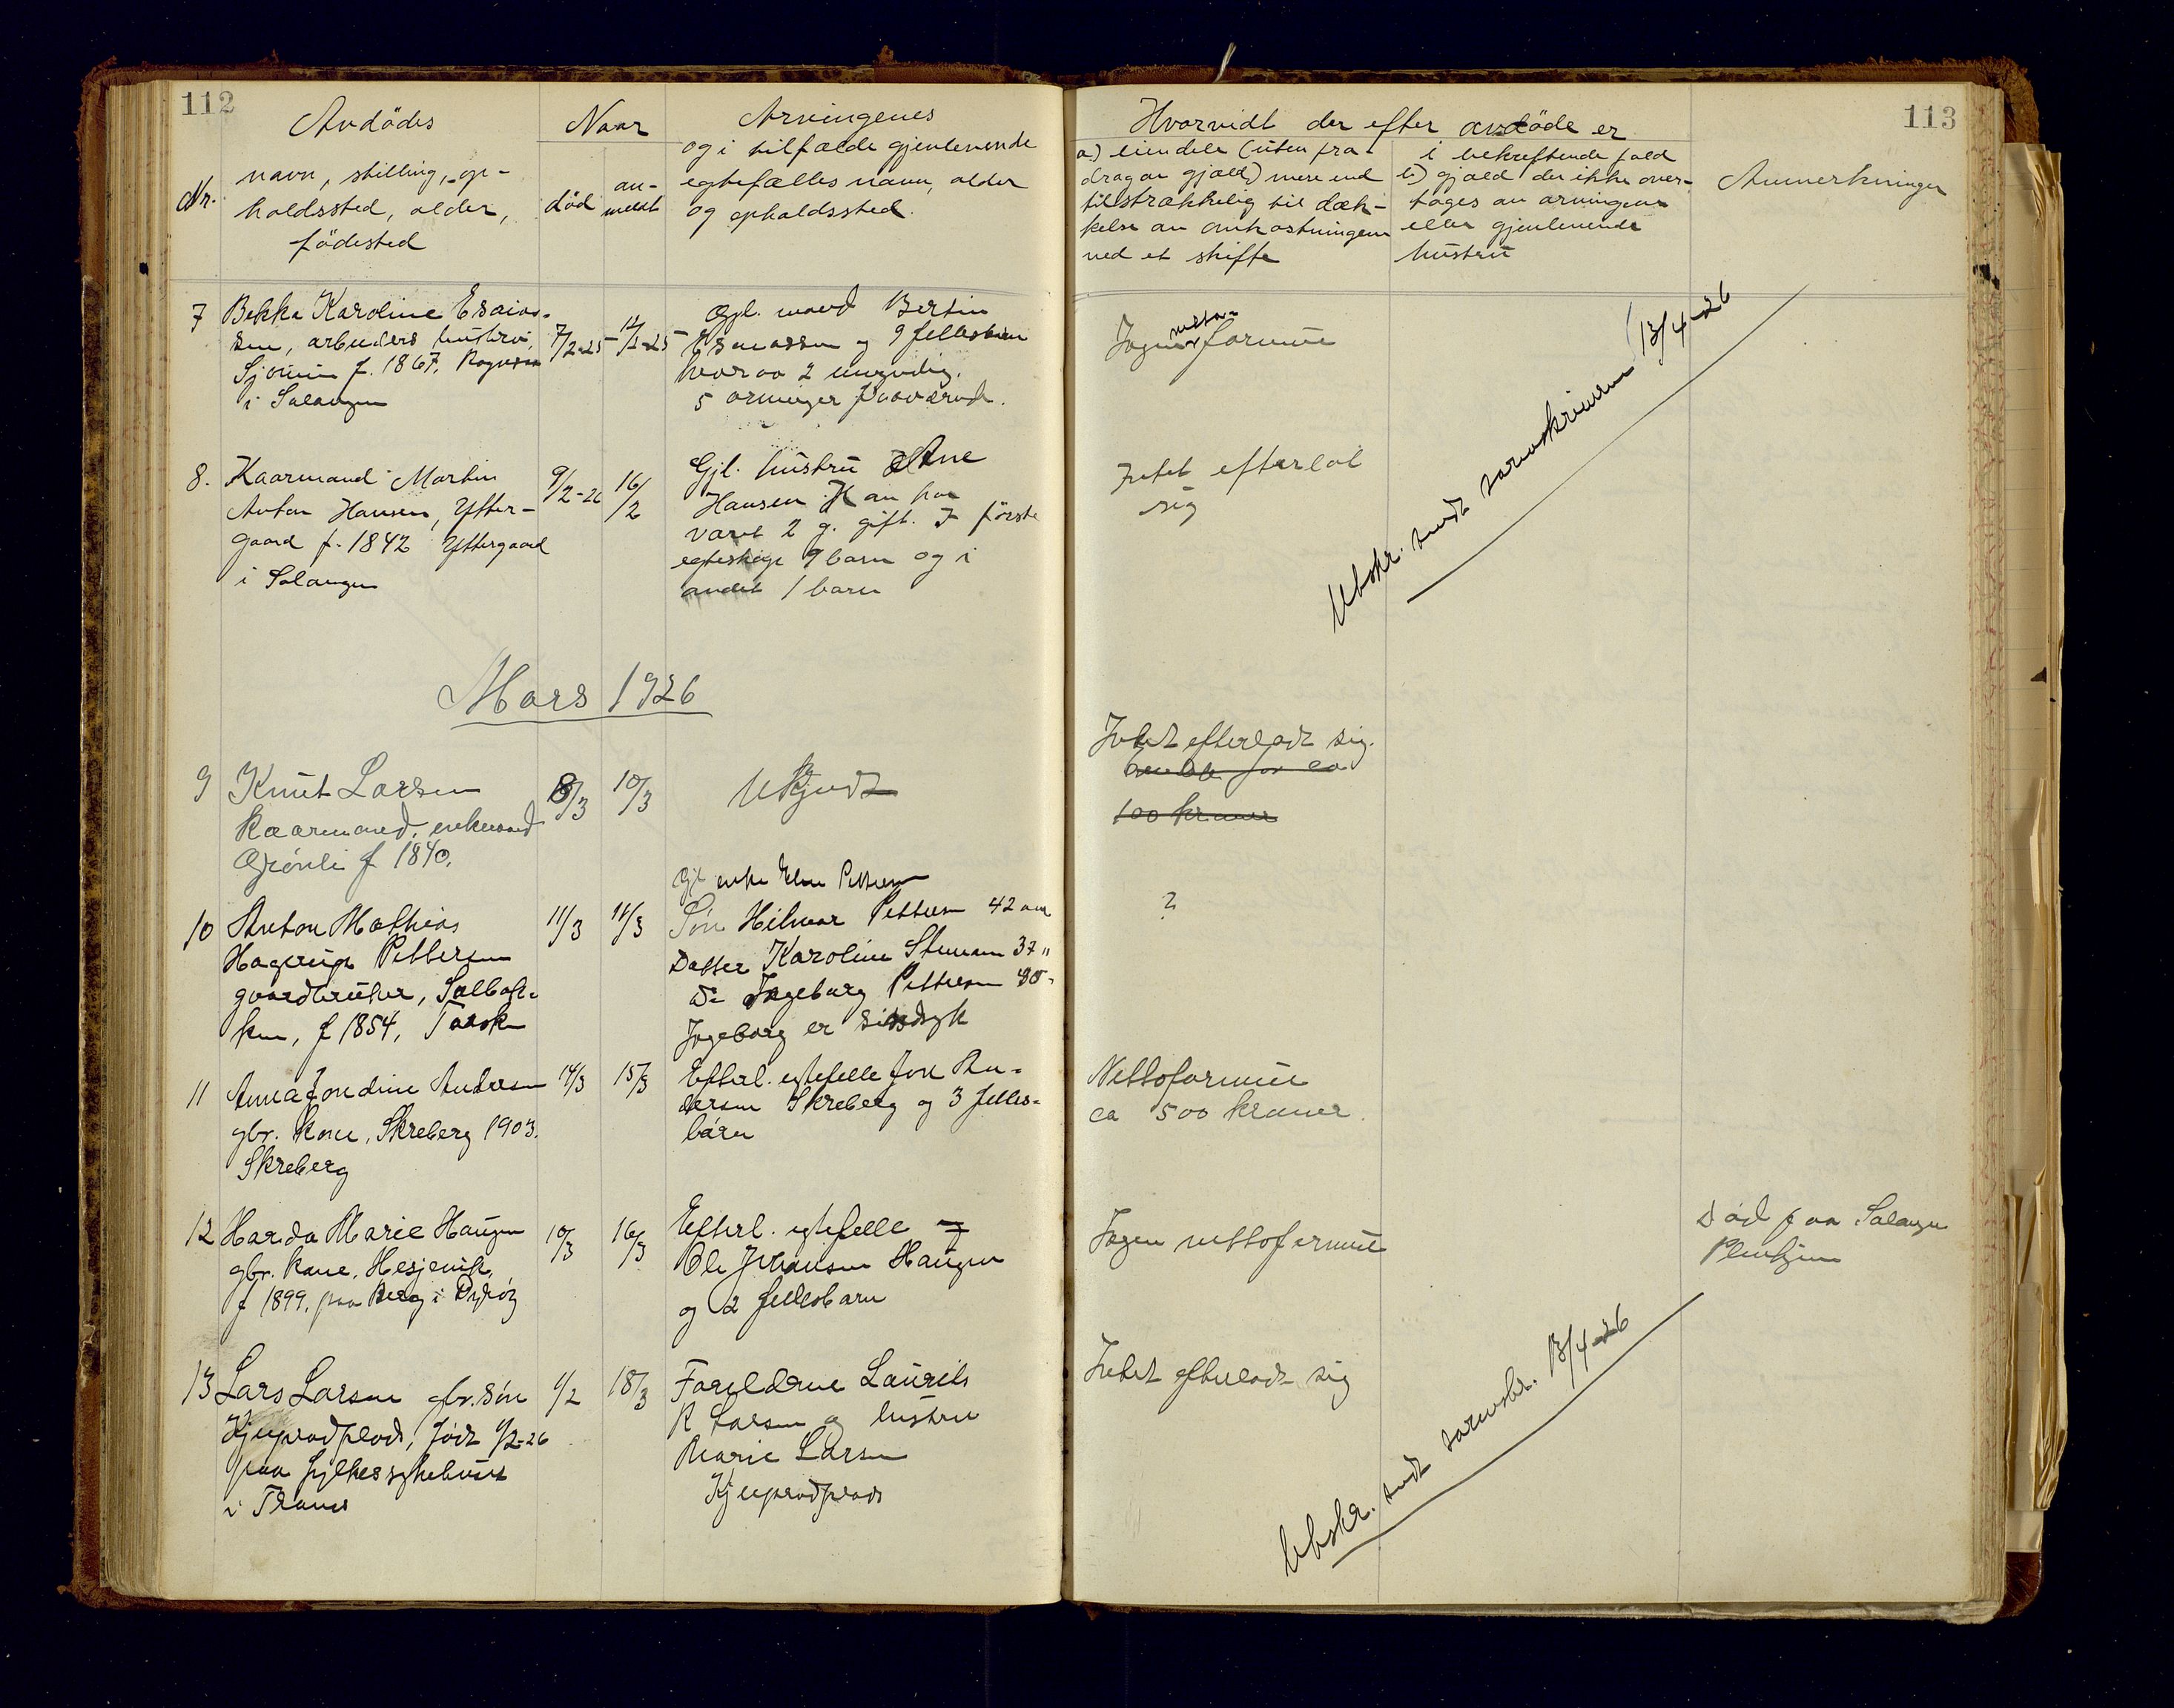 112
Avdödes
Naar
Arvingenes
Nr.
navn, stilling, op-
holdssted, alder,
födested
död
an-
meldt
og i tilfælde gjenlevende
egtefælles navn, alder
og opholdssted.
Hvorvidt der efter avdöde er
113
a) eiendele (uten fra-
drag av gjæld) mere end
tilstrækkelig til dæk-
kelse av omkostningene
ved et skifte
i bekreftende fald
b) gjæld der ikke over-
tages av arvingene
eller gjenlevende
hustru
Anmerkninger
7 Bekka Karoline Esaias-
sen, arbeiders hustru,
f. 1867,
i Salangen
7/2-25
12/2-25
Gjl. mand Bertin
Esaiassen og 9 fellesbarn
hvorav 2 umyndig.
5 arvinger fraværende.
Ingen netto-
formue
8. Kaarmand Martin
Anton Hansen, Ytter-
gaard f. 1842 Yttergaard
i Salangen
9/2-26
16/2
Gjl. hustru Ane
Hansen Han har
varet 2 g. gift. I første
egteskap 9 barn og i
andet 1 barn
Intet efterlat
sig
Utskr. sendt sorenskriveren 13/4-26
Mars 1926
9 Knut Larsen
Kaarmand, enkemand
Grönli f 1840.
8/3
10/3
Ukjendt
Intet efterladt sig.
for ca
100 kroner
10 Anton Mathias
Hagerup Pettersen
gaardbruker, Salbak-
ken, f 1854,
11/3
11/3
Gjl enke Pettersen
Søn Hilmar Pettersen 42 aar
Datter Karoline 37 "
Do Ingeborg Pettersen
Ingeborg er sindsyk
?
11 Anna Jondine Andersen
gbr. kone, Skreberg 1903.
Skreberg
14/3
15/3
Efterl. egtefelle Jon An-
dersen Skreberg og 3 felles-
barn
Nettoformue
ca 500 kroner.
12 Harda Marie Haugen
gbr. kone, Hesjevik,
f 1899, paa Berg i Dyrøy
10/3
16/3
Efterl. egtefelle
Ole Johansen Haugen
og 2 fellesbarn
Ingen nettoformue
Död paa Salangen
Pleiehjem
13 Lars Larsen gbr. søn
født 1/2-26
paa fylkessykehuset
i Tromsø
1/2
18/3
Foreldrene Laurits
R Larsen og hustru
Marie Larsen
Intet efterladt sig
Utskr. sendt sorenskr. 13/4-26